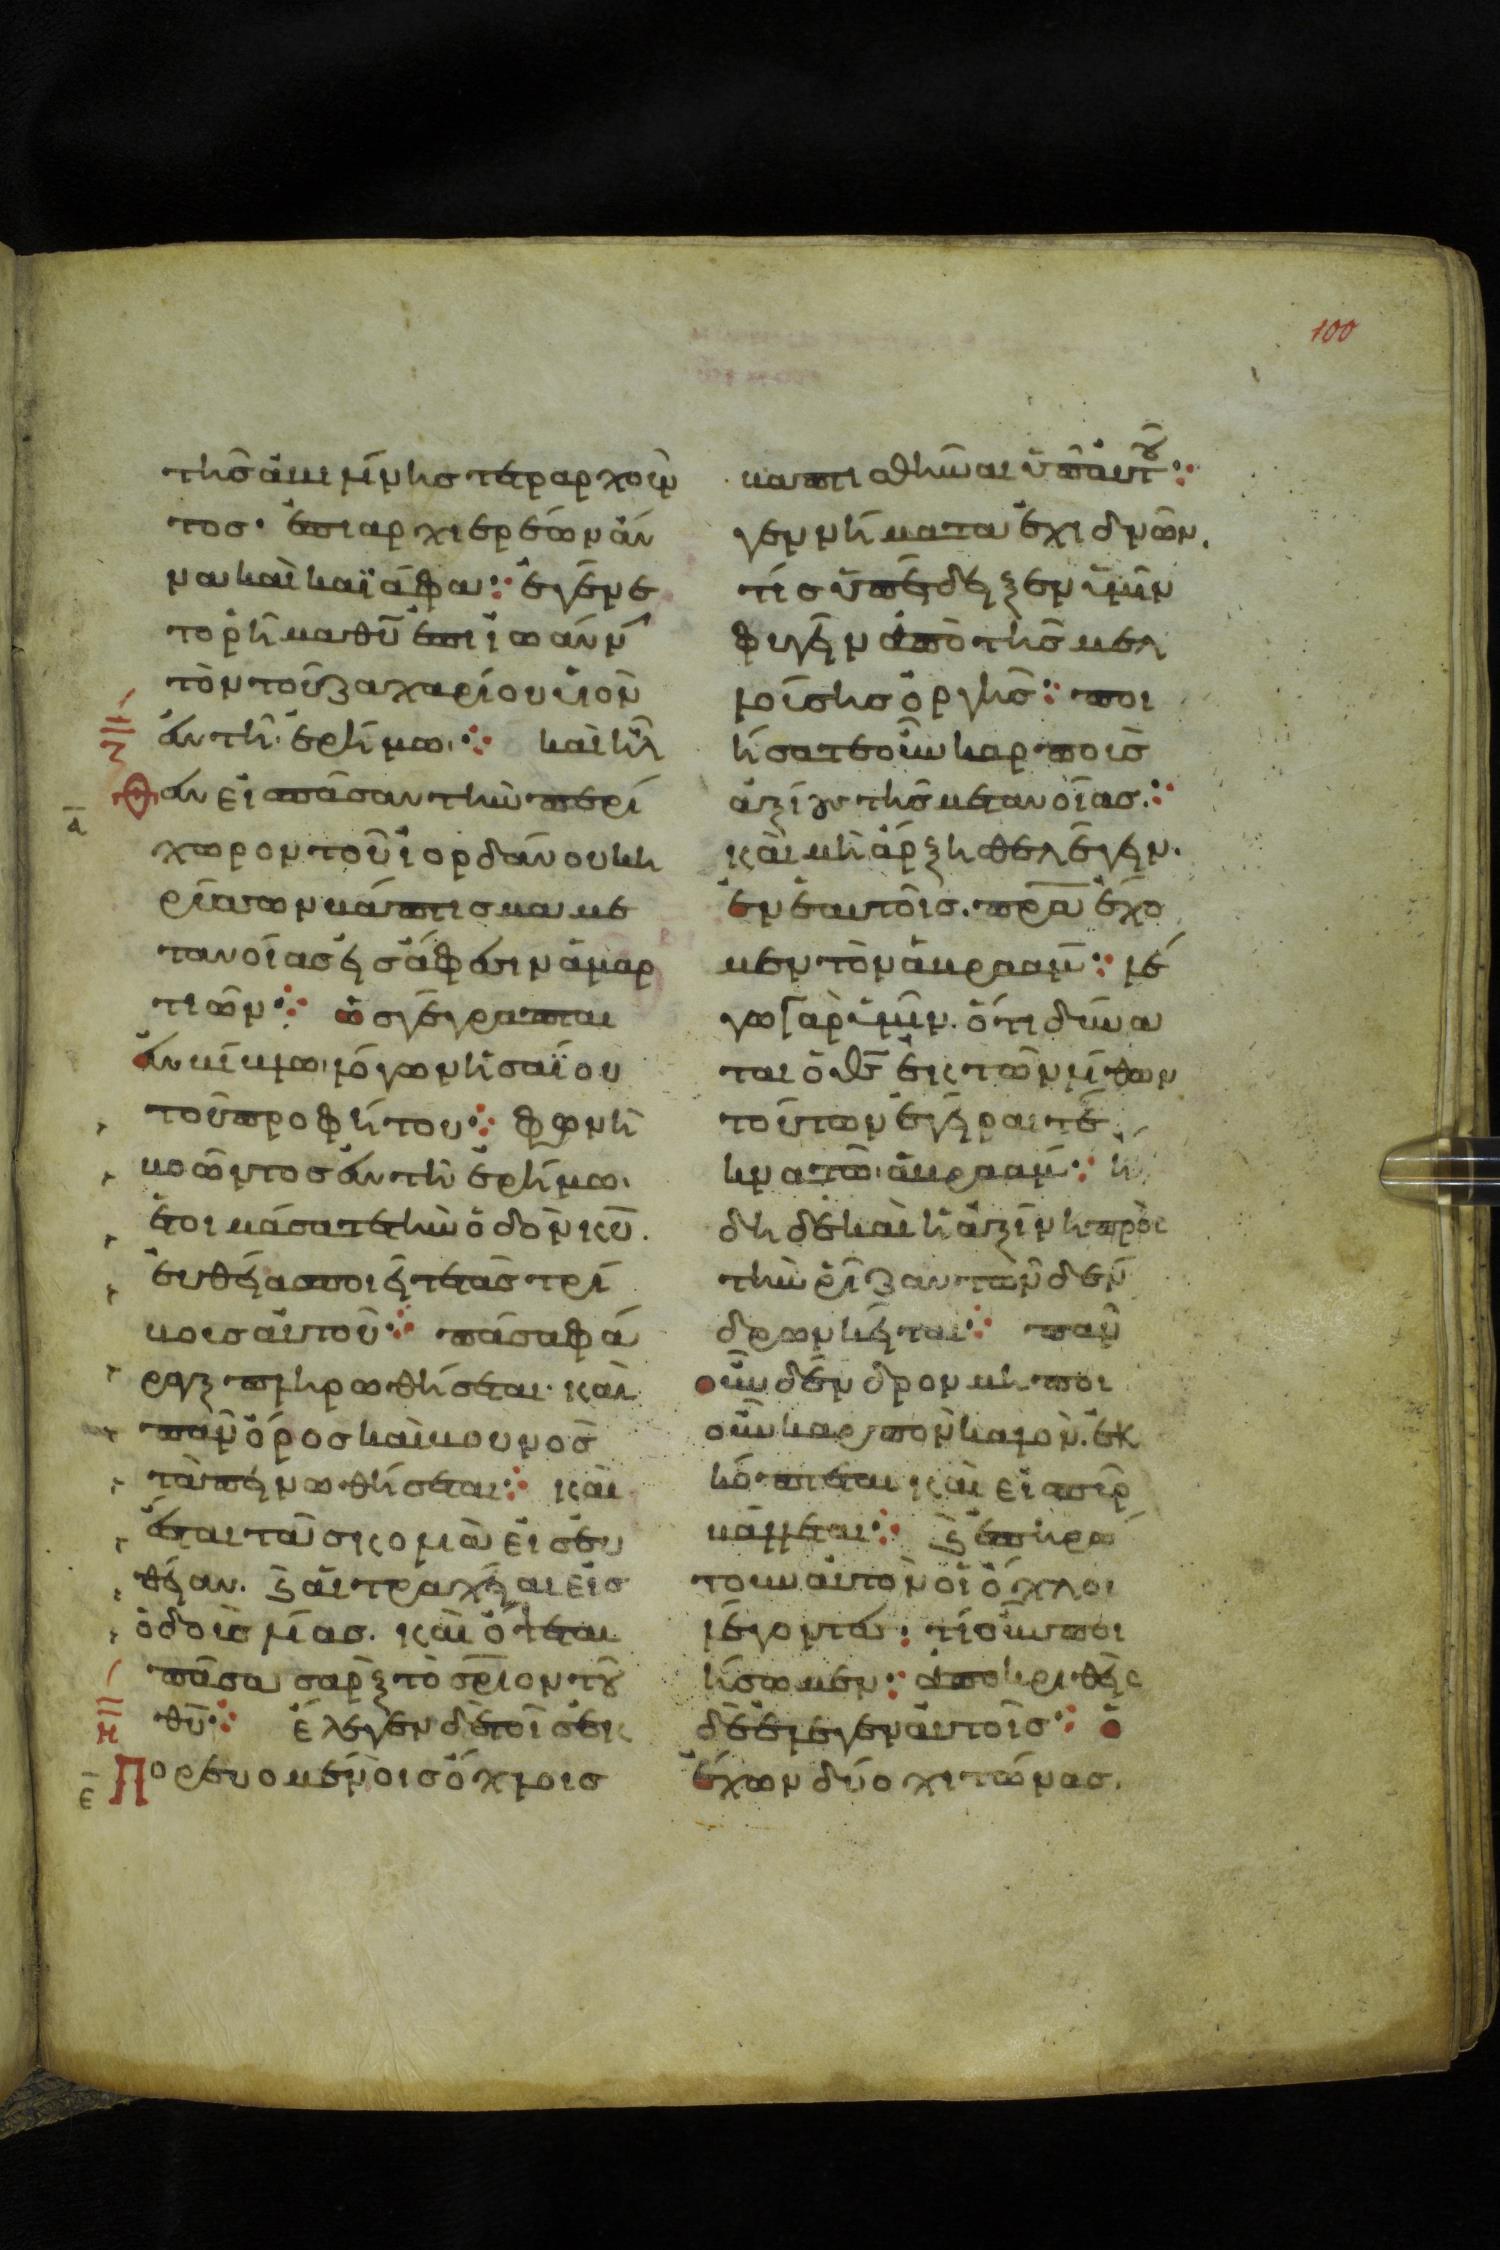 100
τῆς ἀβιλίνης τέραρχοῦν
τος· ἐπι αρχιερέων ἄν
να καὶ καϊάφα: ἐγένε
το ρῆμα θῦ ἐπι ἰωάνν
τὸν τοῦ ζαχαρίου υἱὸν
ἐν τῆ ἐρήμω: καὶ ἦλ
ζ
θεν εἰ πᾶσαν τὴν περί
χωρον τοῦ ἰορδάνου κη
ρύσσων βάπτισμα με
τανοίας εἰς ἄφεσιν ἁμαρ
τιῶν: ὡς γέγραπται
ἐν βίβλω λόγων ἠσαΐου
τοῦ προφήτου: φωνὴ
βοῶντος ἐν τῆ ἐρήμω.
ἑτοιμάσατε τὴν ὁδὸν κῦ.
εὐθείας ποιεῖτε τὰς τρί
βους αὐτοῦ: πᾶσα φά
ραγξ πληρωθήσεται· καὶ
πᾶν ὄρος καὶ βουνὸς
ταπεινωθήσεται: καὶ
ἔσται τὰ σκολιὰ εἰς εὐ
θείαν. ϗ αἱ τραχεῖαι εἰς
ὁδοὺς λίας. καὶ ὄψεται
πᾶσα σαρξ τὸ σριον τοῦ
θῦ: ἔλεγεν δὲ τοῖς ἐκ
η
ε
Πορευομένοις ὄχλοις
βαπτισθῆναι ὑπ αὐτοῦ:
γεννήματα ἐχιδνῶν.
τίς ὑπέδειξεν ὑμῖν
φυγεῖν ἀπὸ τῆς μελ
λούσης ὀργῆς: ποι
ήσατε οὖν καρποὺς
ἀξίους τῆς μετανοίας.:
καὶ μὴ ἄρξησθε λέγειν.
ἐν ἑαυτοῖς. πρα ἔχο
μεν τὸν ἀβραάμ: λέ
γω γὰρ ὑμῖν. ὅτι δύνα
ται ὁ θς ἐκ τῶν λίθων
τούτων ἐγεῖραι τέ
κνα τῶ ἀβραάμ: ἤ
δη δὲ καὶ ἡ ἀξίνη πρὸς
τὴν ρίζαν τῶν δέν
δρων κεῖται: πᾶν
οὖν δένδρον μὴ ποι
οῦν καρπὸν καλὸν. ἐκ
κόπτεται καὶ εἰς πῦρ
βάλλεται: ϗ ἐπηρώ
των αὐτὸν οἱ ὄχλοι
λέγοντες: τί οὖν ποι
ήσωμεν: ἀποκριθεὶς
δὲ ἔλεγεν αὐτοῖς: ὁ
ἔχων δύο χιτώνας.